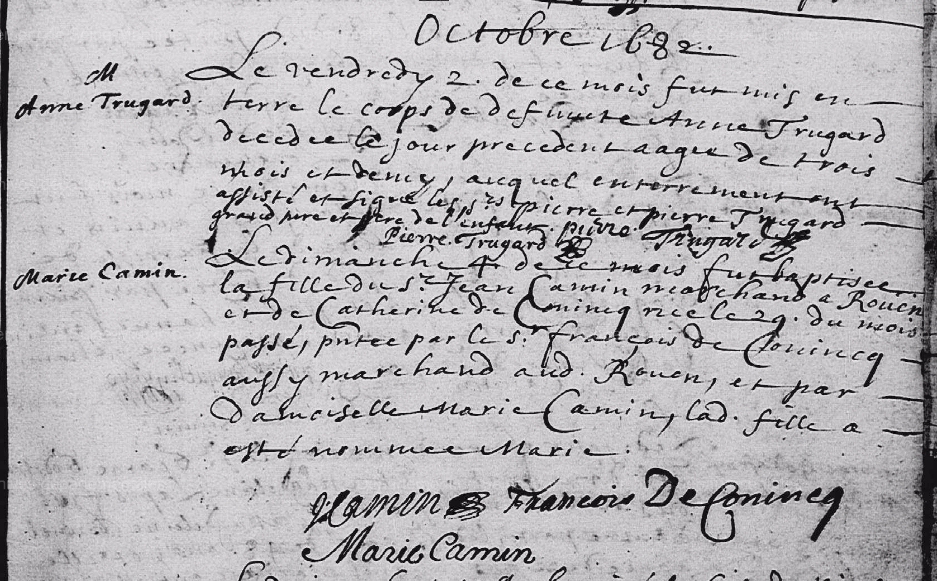 Octobre 1682.
M
Anne Trugard.
Le vendredy 2. de ce mois fut mis en
terre le corps de defunte Anne Trugard
decedee le jour precedent aagee de trois
mois et demy, auquel enterrement ont
assisté et signé les srs pierre et pierre Trugard
grand pere et pere de l'enfant. pierre Trugard
Pierre Trugard
Marie Camin.
Le dimanche 4 de ce mois fut baptisee
la fille du sr Jean Camin marchand a Rouen
et de Catherine de Conincq nee le 29. du mois
passé, pntee par le sr françois de Conincq
aussy marchand aud. Rouen, et par
damoiselle Marie Camin, lad. fille a
esté nommee Marie.
JCamin François De Conincq
Marie Camin